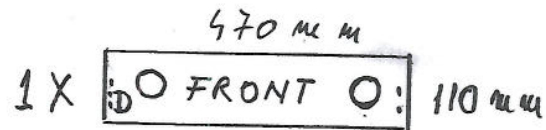 470 mm
1X D FRONT 110 mm